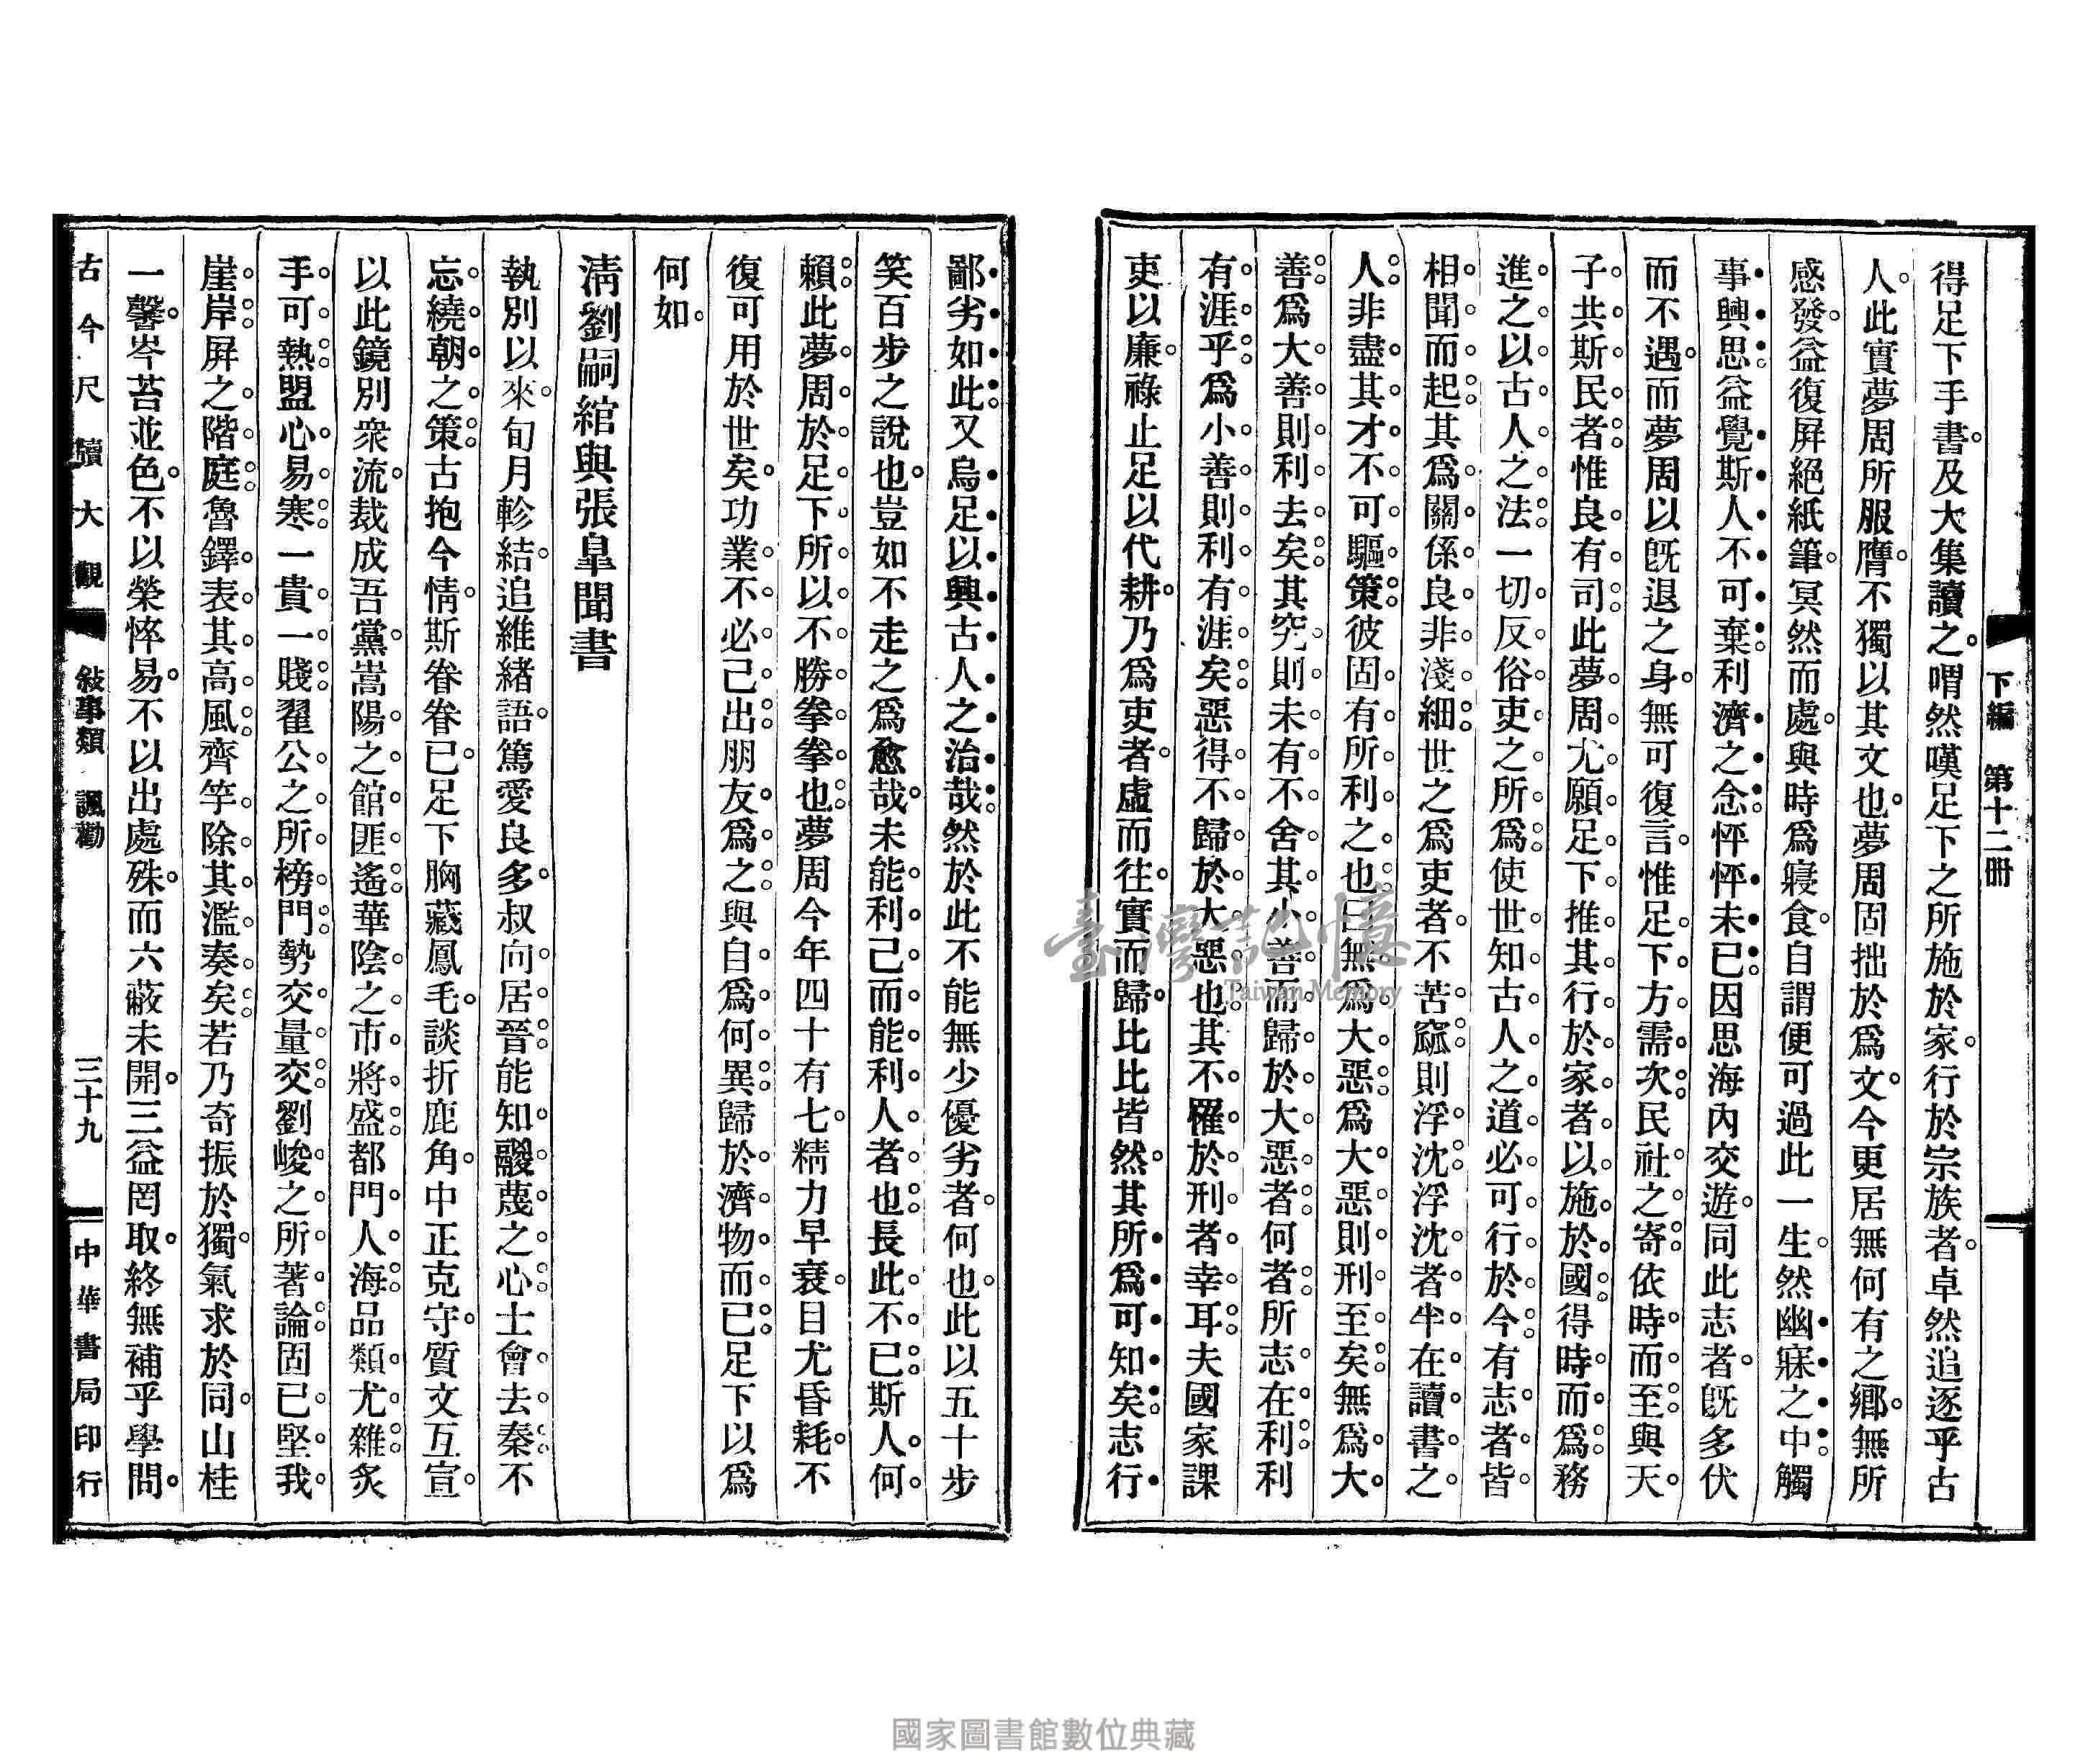 下編　第十二冊
得足下手書及大集讀之喟然嘆足下之所施於家行於宗族者卓然追逐乎古
人此實夢周所服膺不獨以其文也夢周固拙於爲文今更居無何有之鄕無所
感發益復屛絕紙筆冥然而處與時爲寢食自謂便可過此一生然幽寐之中觸
事興思益覺斯人不可棄利濟之念怦怦未已因思海內交遊同此志者旣多伏
而不遇而夢周以旣退之身無可復言惟足下方需次民社之寄依時而至與天
子共斯民者惟良有司此夢周尤願足下推其行於家者以施於國得時而爲務
進之以古人之法一切反俗吏之所爲使世知古人之道必可行於今有志者皆
相聞而起其爲關係良非淺細世之爲吏者不苦窳則浮沈浮沈者半在讀書之
人非盡其才不可驅策彼固有所利之也曰無爲大惡爲大惡則刑至矣無爲大
善爲大善則利去矣其究則未有不舍其小善而歸於大惡者何者所志在利利
有涯乎爲小善則利有涯矣惡得不歸於大惡也其不罹於刑者幸耳夫國家課
吏以廉祿止足以代耕乃爲吏者虛而往實而歸比比皆然其所爲可知矣志行
鄙劣如此又烏足以興古人之治哉然於此不能無少優劣者何也此以五十步
笑百步之說也豈如不走之爲愈哉未能利己而能利人者也長此不已斯人何
賴此夢周於足下所以不勝拳拳也夢周今年四十有七精力早衰目尤昏耗不
復可用於世矣功業不必己出朋友爲之與自爲何異歸於濟物而已足下以爲
何如
淸劉嗣綰與張皐聞書
執別以來旬月軫結追維緒語篤愛良多叔向居晉能知鬷蔑之心士會去秦不
忘繞朝之策古抱今情斯眷眷已足下胸藏鳳毛談折鹿角中正克守質文互宣
以此鏡別衆流裁成吾黨嵩陽之館匪遙華陰之市將盛都門人海品類尤雜炙
手可熱盟心易寒一貴一賤翟公之所榜門勢交量交劉峻之所著論固已堅我
崖岸屛之階庭魯鐸表其高風齊竽除其濫奏矣若乃奇振於獨氣求於同山桂
一馨岑苔並色不以榮悴易不以出處殊而六蔽未開三益罔取終無補乎學問
古今尺牘大觀　敍事類　諷勸　三十九　中華書局印行
臺灣記憶
Taiwan Memory
國家圖書館數位典藏